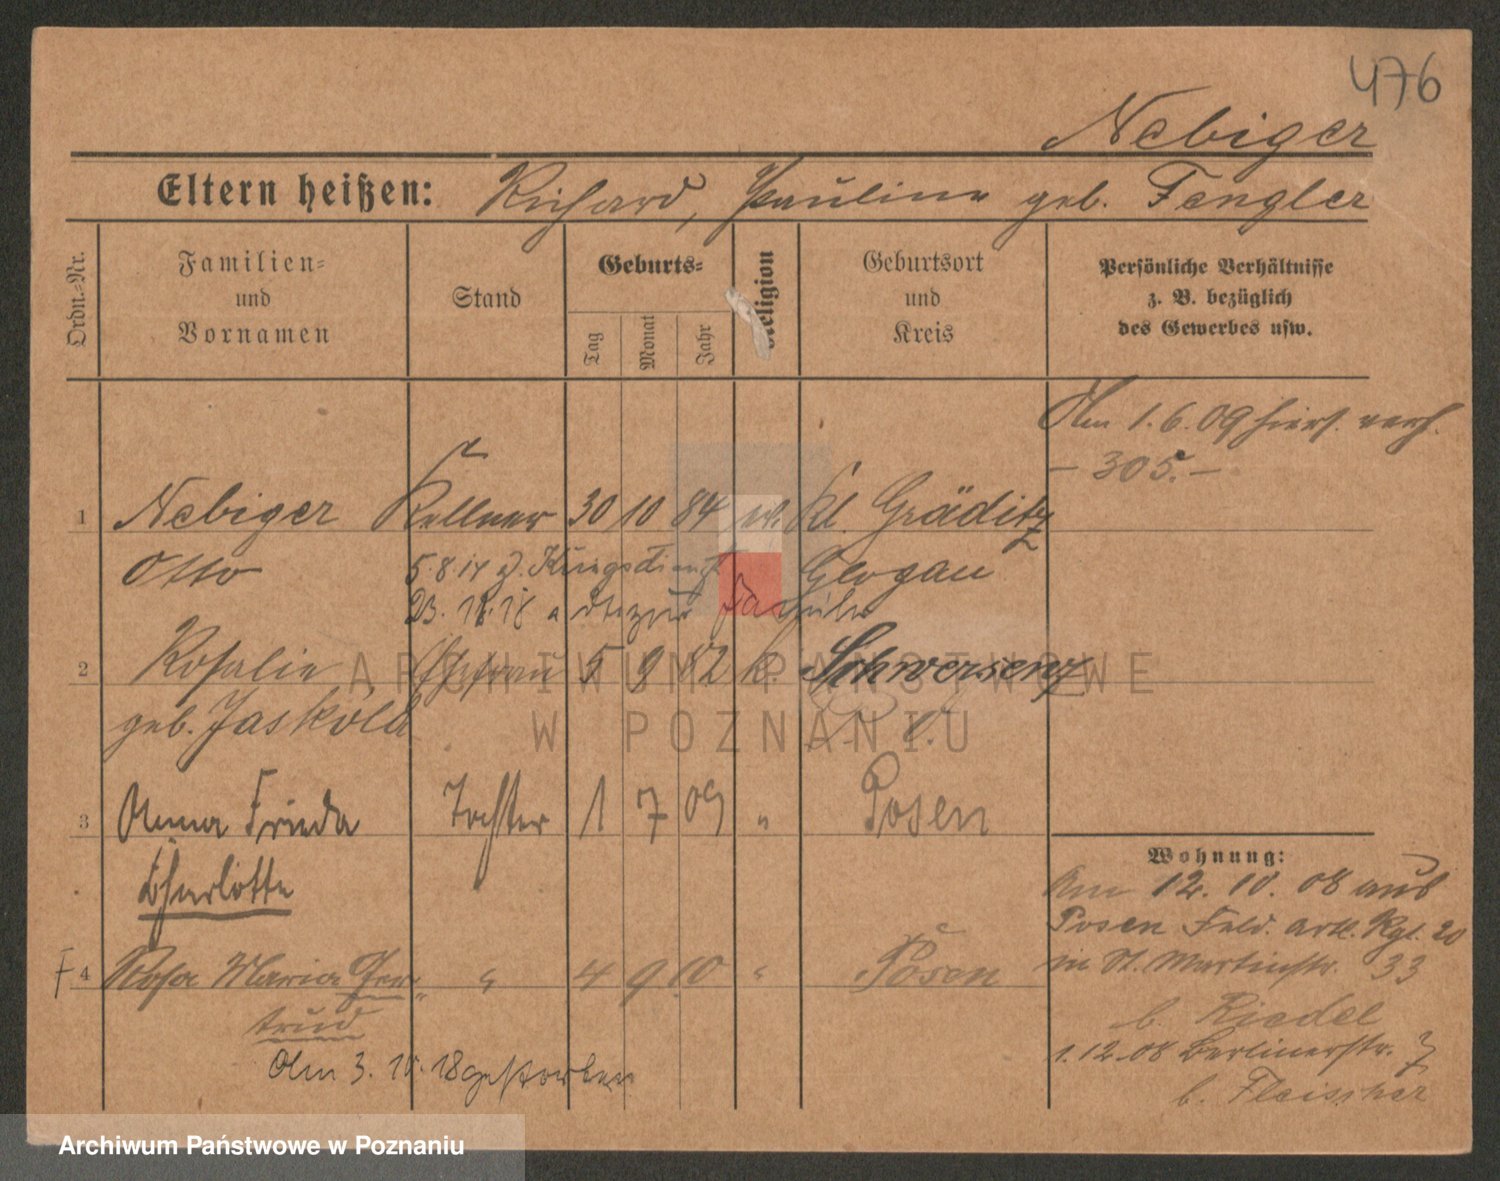 476
Nebiger
Eltern heißen: Richard, Pauline geb. Fengler
Ordn.-Nr.
Familien-
und
Vornamen
Stand
Geburts-
Tag
Monat
Jahr
Religion
Geburtsort
und
Kreis
Persönliche Verhältnisse
z. B. bezüglich
des Gewerbes usw.
Am 1.6.09 hiers. verh.
– 305. –
1 Nebiger Kellner 30 10 84 ev. Kl. Gräditz
Otto 5.8.14 z. Kriegsdienst Glogau
23. 12. 18 a zur Familie
2 Rosalie Ehefrau 5 9 82 k. Schwersenz
geb. Jaskóla
3 Anna Frieda Tochter 1 7 09 " Posen
Charlotte
4 Rosa Maria Ger- " 4 9 10 " Posen
trud
Am 3. 10. 18 gestorben
Wohnung:
Am 12. 10. 08 aus
Posen Feld. Artl. Rgt. 20
in St. Martinstr. 33
b. Riedel
1.12.08 Berlinerstr. 7
b. Fleischer
ARCHIWUM PAŃSTWOWE
W POZNANIU
Archiwum Państwowe w Poznaniu